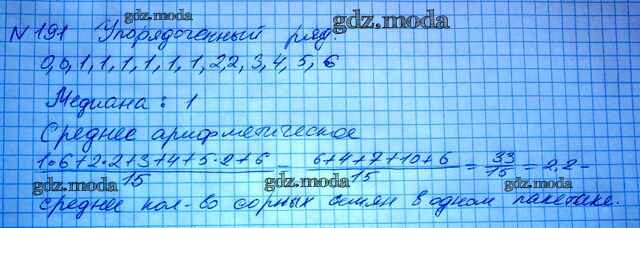 gdz.moda
gdz.moda
N 191 Упорядоченный ряд
0,0,1,1,1,1,1,1,2,2,3,4,5,6
gdz.moda
Медиана : 1
Среднее арифметическое
gdz.moda
1·6+2·2+3+4+5·2+6 / 15 = 6+4+7+10+6 / 15 = 33 / 15 = 2,2 -
gdz.moda gdz.moda gdz.moda
среднее кол-во сорных семян в одном пакетике.
gdz.moda